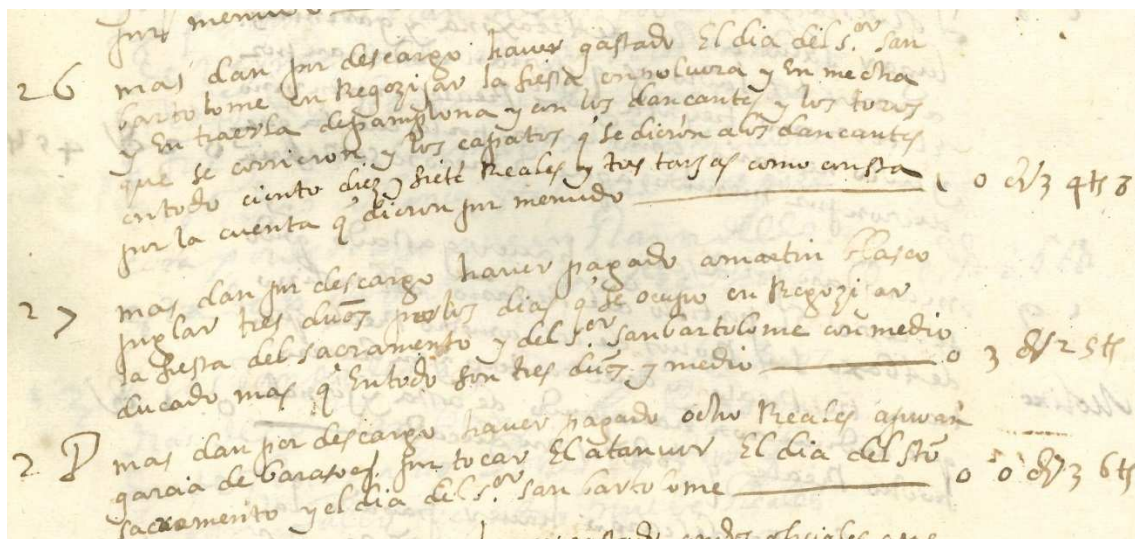 por menudo
26 mas dan por descargo haver gastado El dia del s.or san
bartolome en Regozijar la fiesta en polvora y En mecha
y En traerla de pamplona y con los dancantes y los toros
que se corrieron y los capatos q se dieron a los dancantes
en todo ciento diez y siete Reales y tres tarjas como consta
por la cuenta q dieron por menudo
27 mas dan por descargo haver pagado a martin blasco
juglar tres du.os por los dias q se ocupo en Regozijar
la fiesta del sacramento y del s.or san bartolome con medio
ducado mas q En todo son tres du.os y medio
28 mas dan por descargo haver pagado ocho Reales a juan
garcia de barasoej por tocar El atanvor El dia del sto
sacramento y el dia del s.or san bartolome